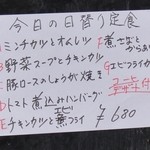 今日の日替り定食
Aミンチカツとオムレツ
B野菜スープとチキンカツ
C豚ロースのしょうが焼き
Dトマト煮込みハンバーグ
Eチキンカツとエビフライ
F煮さばとからあげ
Gエビフライカ
￥680